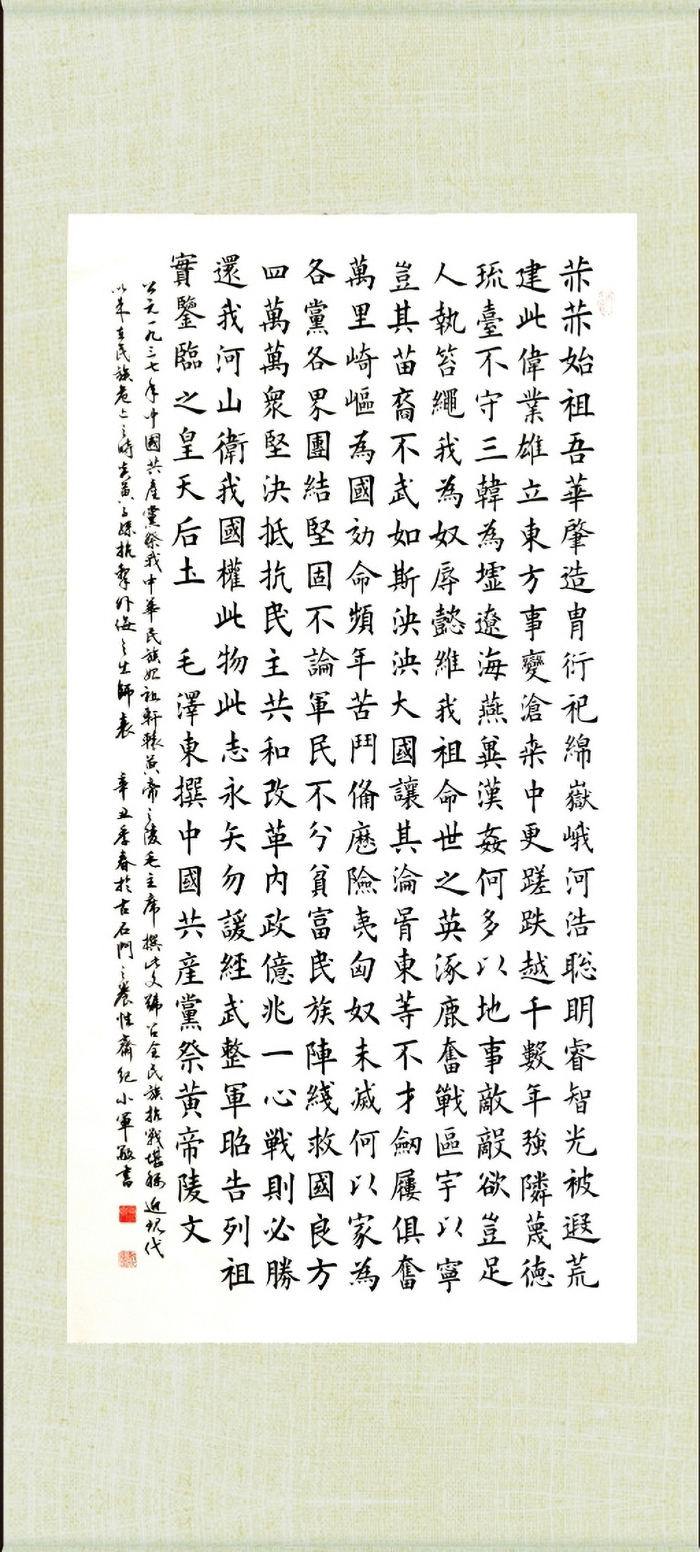 赫赫始祖吾華肇造冑衍祀綿嶽峨河浩聪明睿智光被遐荒
建此偉業雄立東方事變滄桒中更蹉跌越千數年強隣蔑德
琉臺不守三韓為墟遼海燕冀漢姦何多以地事敵敵欲豈足
人執笞繩我為奴辱懿維我祖命世之英涿鹿奮戰區宇以寧
豈其苗裔不武如斯泱泱大國讓其淪胥東等不才劒屨俱奮
萬里崎嶇為國効命頻年苦鬥備歷險夷匈奴未滅何以家為
各黨各界團結堅固不論軍民不分貧富民族陣綫救國良方
四萬萬眾堅決抵抗民主共和改革內政億兆一心戰則必勝
還我河山衛我國權此物此志永矢勿諼經武整軍昭告列祖
實鑒臨之皇天后土 毛澤東撰中國共產黨祭黃帝陵文
公元一九三七年中國共產黨祭我中華民族始祖軒轅黃帝之陵毛主席撰此文號召全民族抗戰堪稱近現代
以來吾民族危亡之時炎黃子孫抗擊外侮之出師表 辛丑季春於古石門之養性齋紀小軍敬書